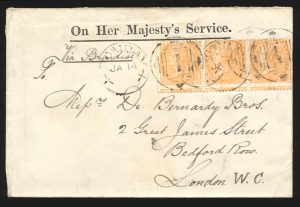 On Her Majesty's Service.
Via Brindisi
JA 14
To
Messrs De Bernardy Bros.
2 Great James Street
Bedford Row.
London W.C.